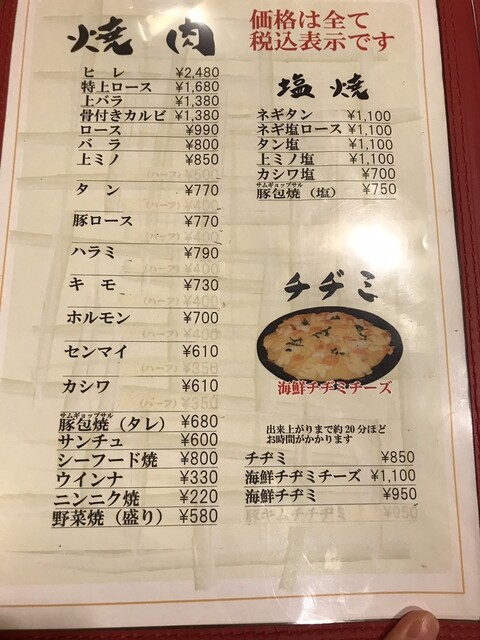 焼肉
価格は全て
税込表示です
ヒレ ¥2,480
特上ロース ¥1,680
上バラ ¥1,380
骨付きカルビ ¥1,380
ロース ¥990
バラ ¥800
上ミノ ¥850
(ハーフ) ¥500
タン ¥770
(ハーフ) ¥400
豚ロース ¥770
(ハーフ) ¥400
ハラミ ¥790
(ハーフ) ¥400
キモ ¥730
(ハーフ) ¥400
ホルモン ¥700
(ハーフ) ¥400
センマイ ¥610
(ハーフ) ¥350
カシワ ¥610
(ハーフ) ¥350
サムギョップサル
豚包焼(タレ) ¥680
サンチュ ¥600
シーフード焼 ¥800
ウインナ ¥330
ニンニク焼 ¥220
野菜焼(盛り) ¥580
塩焼
ネギタン ¥1,100
ネギ塩ロース ¥1,100
タン塩 ¥1,100
上ミノ塩 ¥1,100
カシワ塩 ¥700
サムギョップサル
豚包焼(塩) ¥750
チヂミ
海鮮チヂミチーズ
出来上がりまで約20分ほど
お時間がかかります
チヂミ ¥850
海鮮チヂミチーズ ¥1,100
海鮮チヂミ ¥950
豚キムチチヂミ ¥950